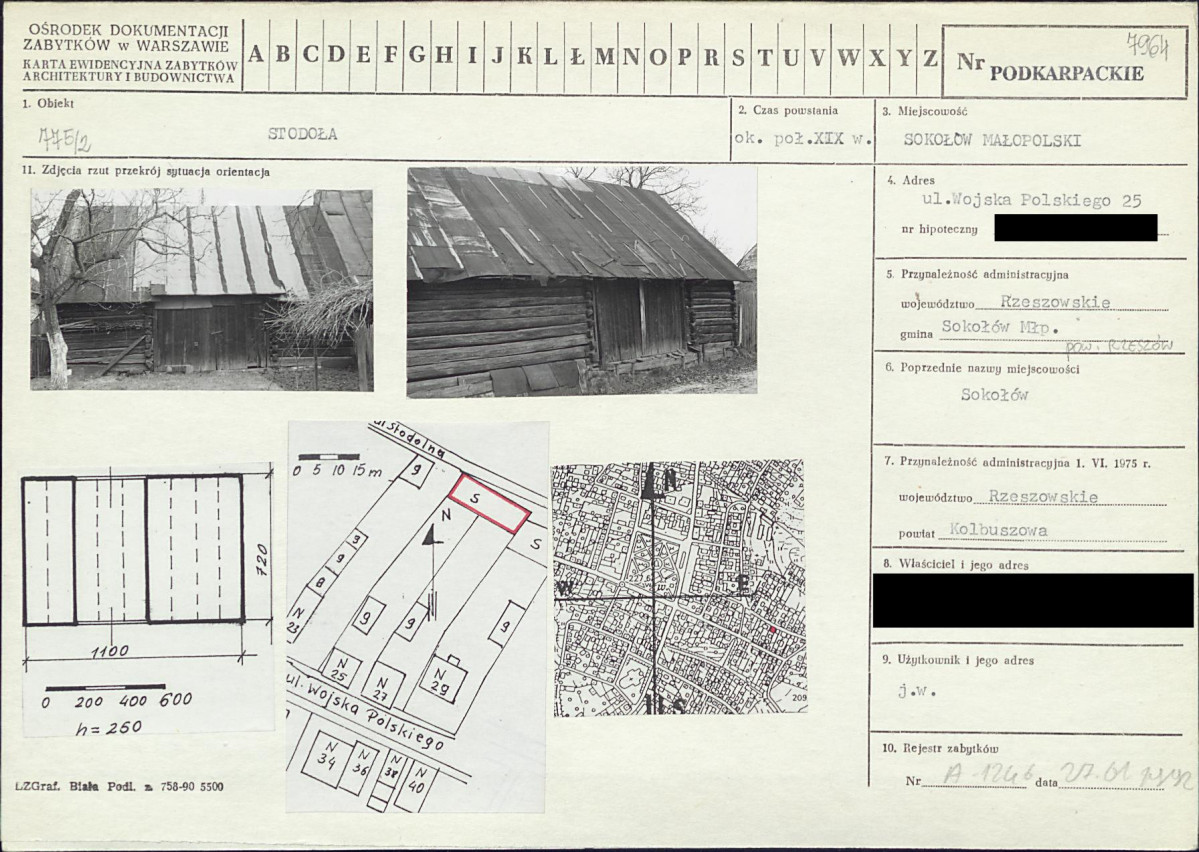 OŚRODEK DOKUMENTACJI
ZABYTKÓW w WARSZAWIE
KARTA EWIDENCYJNA ZABYTKÓW
ARCHITEKTURY I BUDOWNICTWA
A B C D E F G H I J K L Ł M N O P R S T U V W X Y Z
Nr PODKARPACKIE
7964
1. Obiekt
775/2
STODOŁA
2. Czas powstania
ok. poł.XIX w.
3. Miejscowość
SOKOŁÓW MAŁOPOLSKI
11. Zdjęcia rzut przekrój sytuacja orientacja
4. Adres
ul.Wojska Polskiego 25
nr hipoteczny
5. Przynależność administracyjna
województwo Rzeszowskie
gmina Sokołów Młp.
pow. RZESZÓW
6. Poprzednie nazwy miejscowości
Sokołów
7. Przynależność administracyjna 1. VI. 1975 r.
województwo Rzeszowskie
powiat Kolbuszowa
8. Właściciel i jego adres
9. Użytkownik i jego adres
j.w.
10. Rejestr zabytków
Nr A-1246 data
720
1100
0 200 400 600
h=250
ul Stodolna
0 5 10 15 m
g
S
N
S
g
g
8
N
23
g
g
g
N
25
N
27
N
29
ul. Wojska Polskiego
N
34
N
36
N
38
N
40
N
W
E
S
209
LZGraf. Biała Podl. z. 758-90 5500